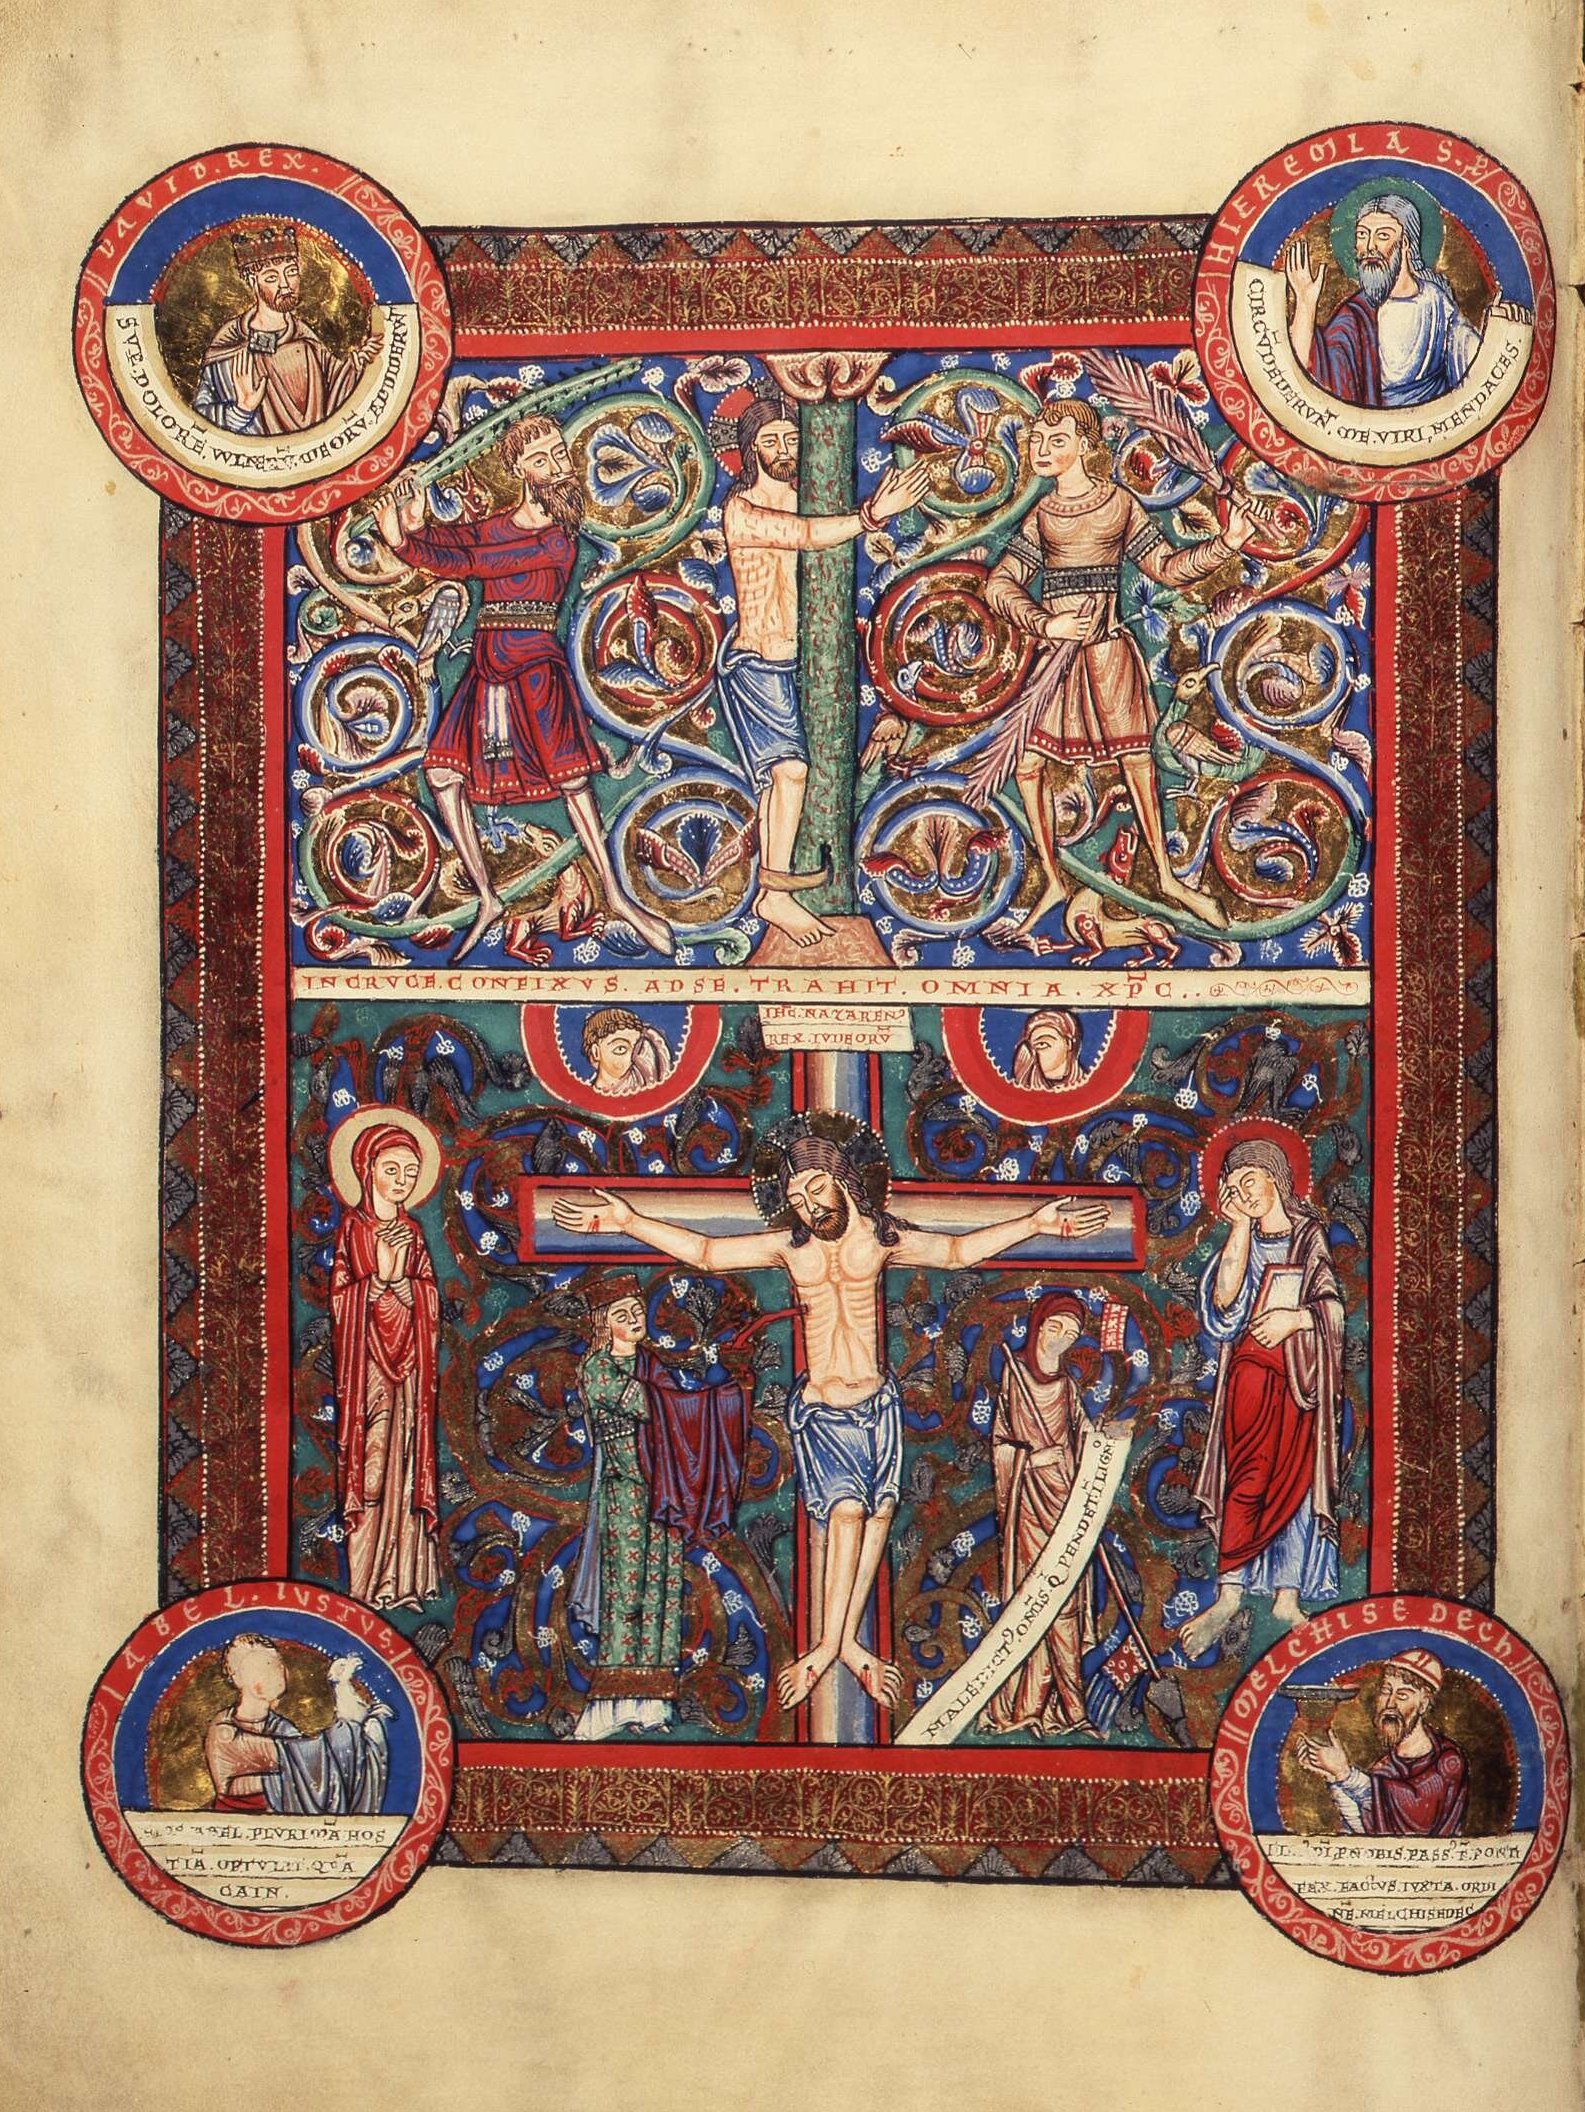 DAVID.REX.
SVP. DOLORĒ. WLNERV̄. MEORV̄. ADDIDERVNT
HIEREMIAS.PR
CIRCV̄DEDERVNT. ME. VIRI, MENDACES.
IN CRVCE. CONFIXVS. AD SE. TRAHIT. OMNIA. XP̄C..
IHC̄. NAZAREN9
REX. IVDEORV̄
MALEDICT9. OM̄IS. Q̄ PENDET. I LIGNO
ABEL. IVSTVS.
ABEL. PLVRIMĀ HOS
TIĀ. OPTVLIT. QVĀ
CAIN.
MELCHISEDECH
P NOBIS. PASS9. Ē. PONTI
FEX. FACTVS. IVXTA. ORDI
NĒ. MELCHISEDEC